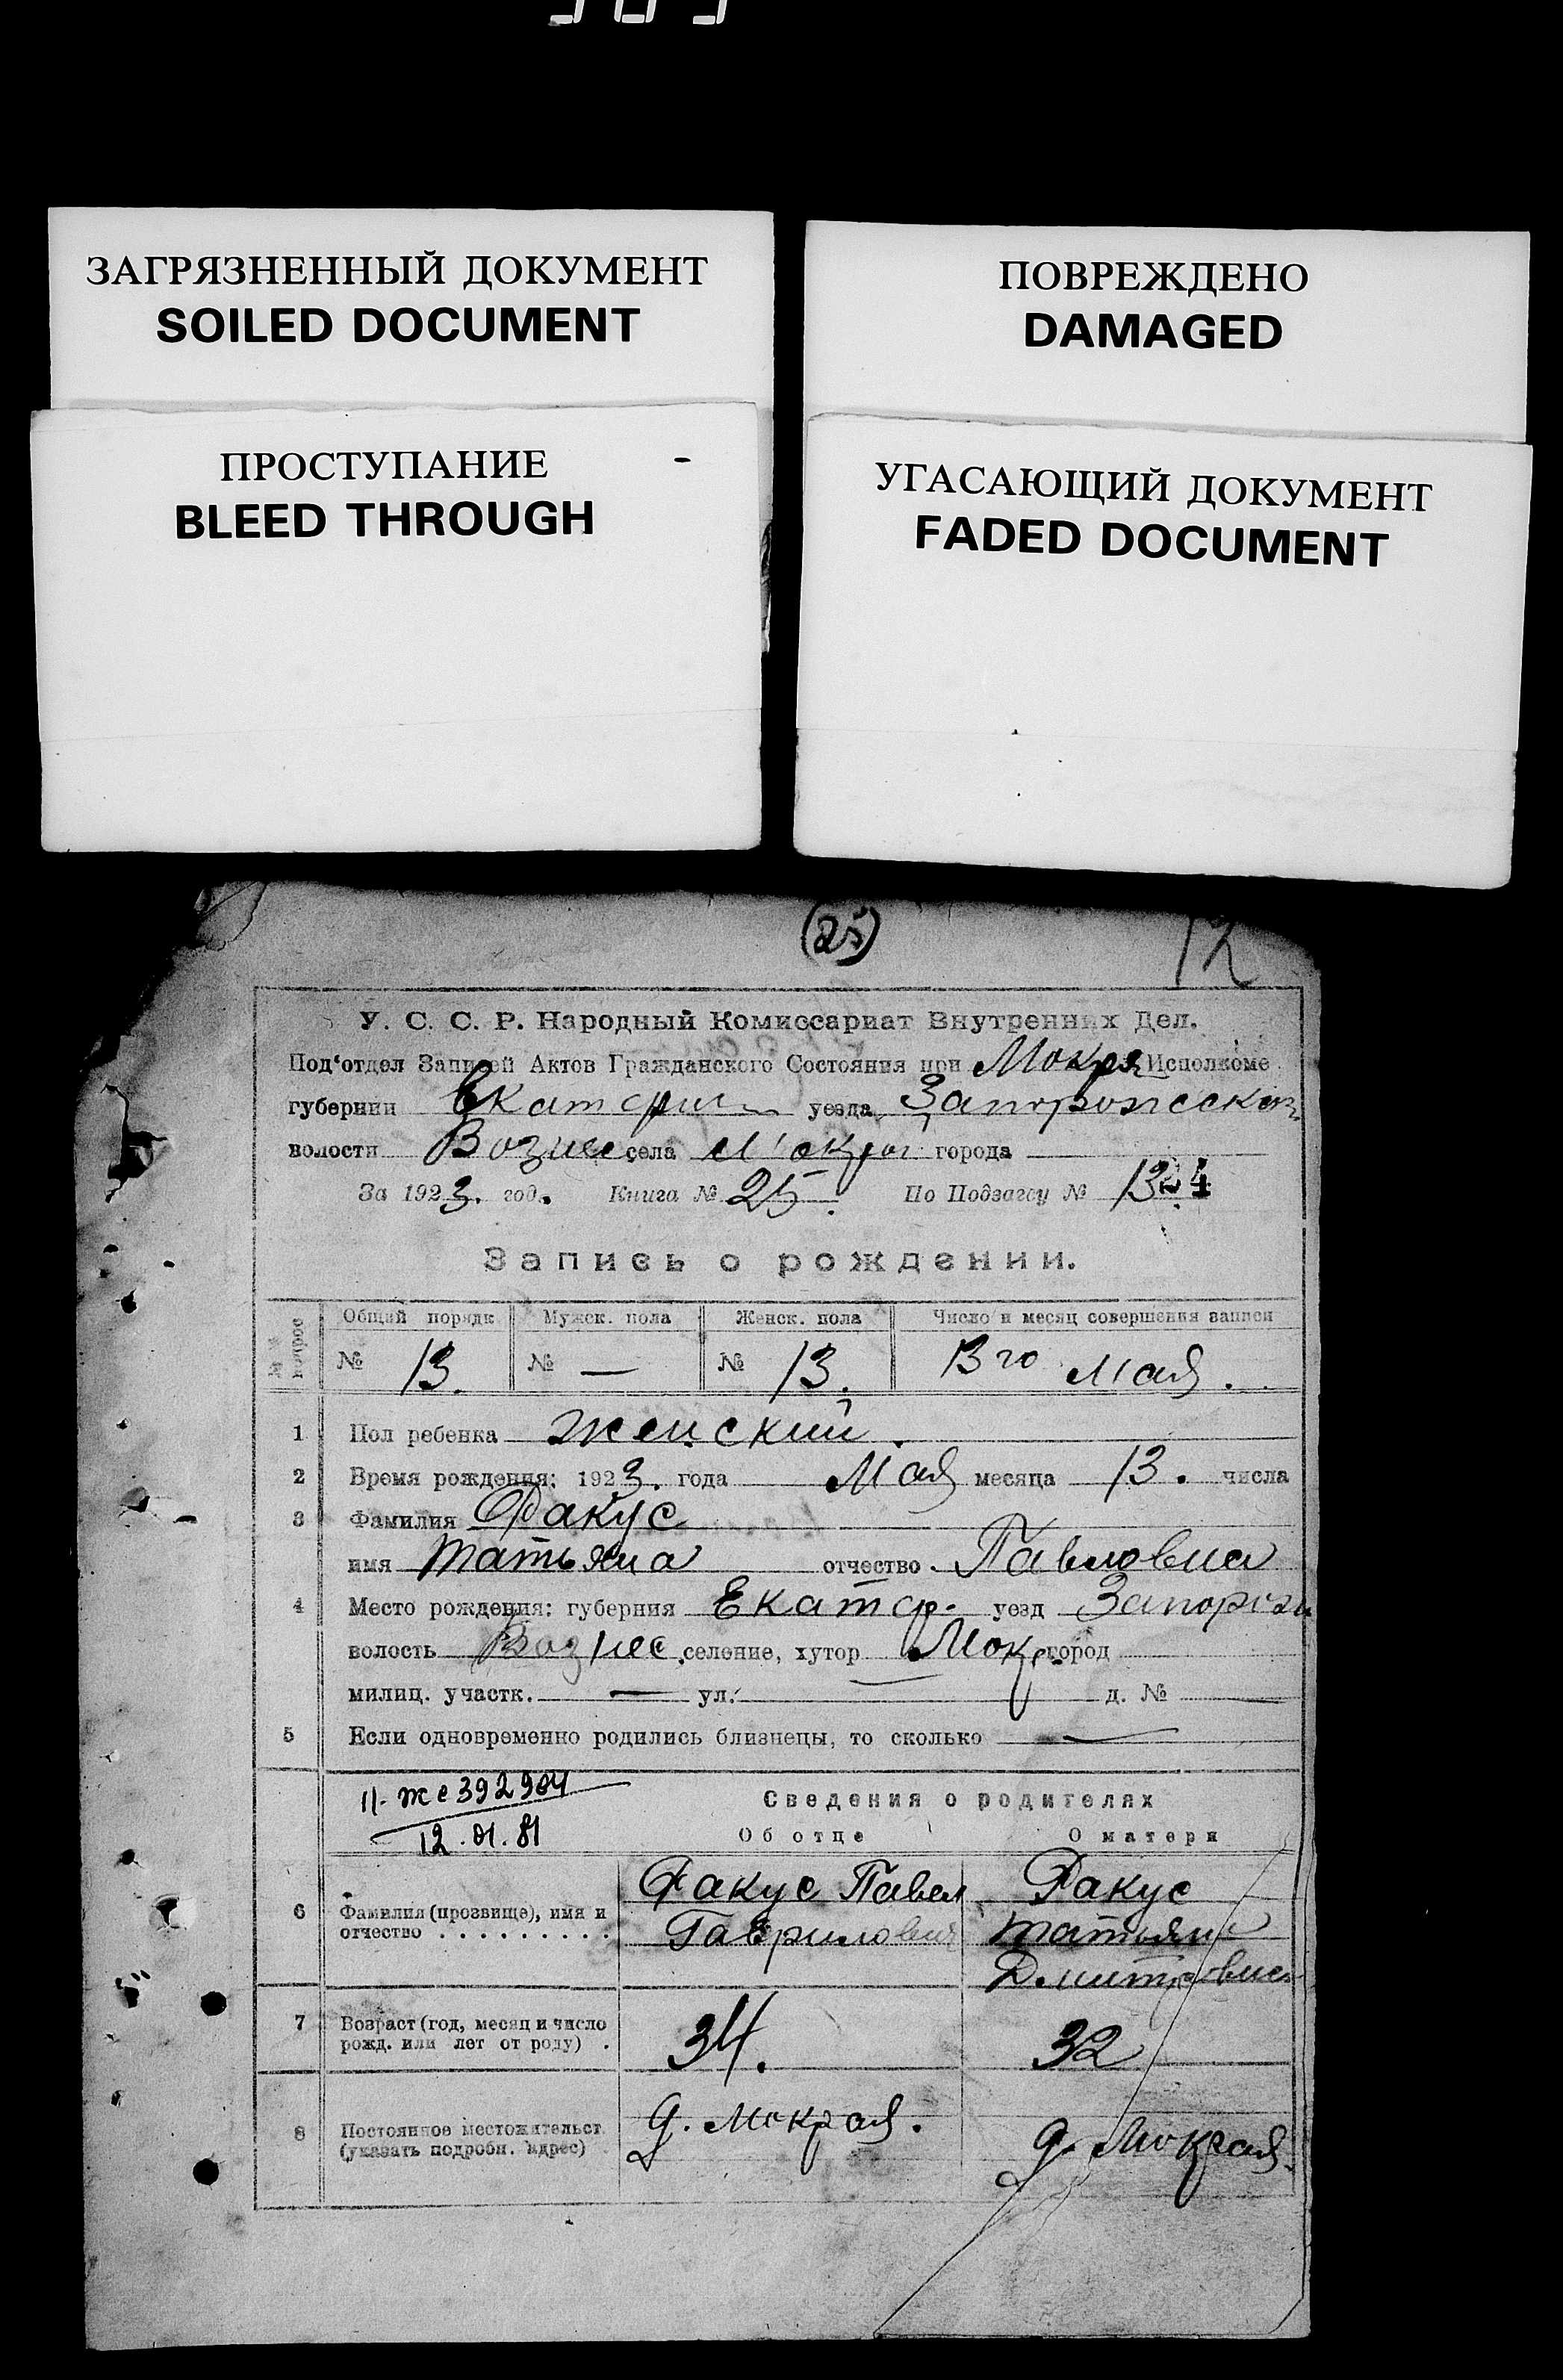 ЗАГРЯЗНЕННЫЙ ДОКУМЕНТ
SOILED DOCUMENT
ПОВРЕЖДЕНО
DAMAGED
ПРОСТУПАНИЕ
BLEED THROUGH
УГАСАЮЩИЙ ДОКУМЕНТ
FADED DOCUMENT
(25) 12
У. С. С. Р. Народный Комиссариат Внутренних Дел.
Под'отдел Записей Актов Гражданского Состояния при Мокря Исполкоме
губернии Екатерин уезда Запорожеск
волости Вознес села Мокрой города —
За 1923. год. Книга № 25. По Подзагсу №
Запись о рождении.
№№ вопрос Общий порядк Мужск. пола Женск. пола Число и месяц совершения записи
№ 13. № — № 13. 13го Мая.
1 Пол ребенка женский.
2 Время рождения: 1923. года Мая месяца 13. числа
3 Фамилия Факус
имя Татьяна отчество Павловна
4 Место рождения: губерния Екатер. уезд Запорож
волость Вознес. селение, хутор Мокр. город
милиц. участк. — ул. — д. № —
5 Если одновременно родились близнецы, то сколько —
II-же 392904
12.01.81
Сведения о родителях
Об отце О матери
6 Фамилия (прозвище), имя и отчество . . . . . . . . .
Факус Павел
Гаврилович
Факус
Татьяна
Дмитровна
7 Возраст (год, месяц и число рожд. или лет от роду) . 34. 32
8 Постоянное местожительст (указать подробн. адрес) д. Мокрая. д. Мокрая.